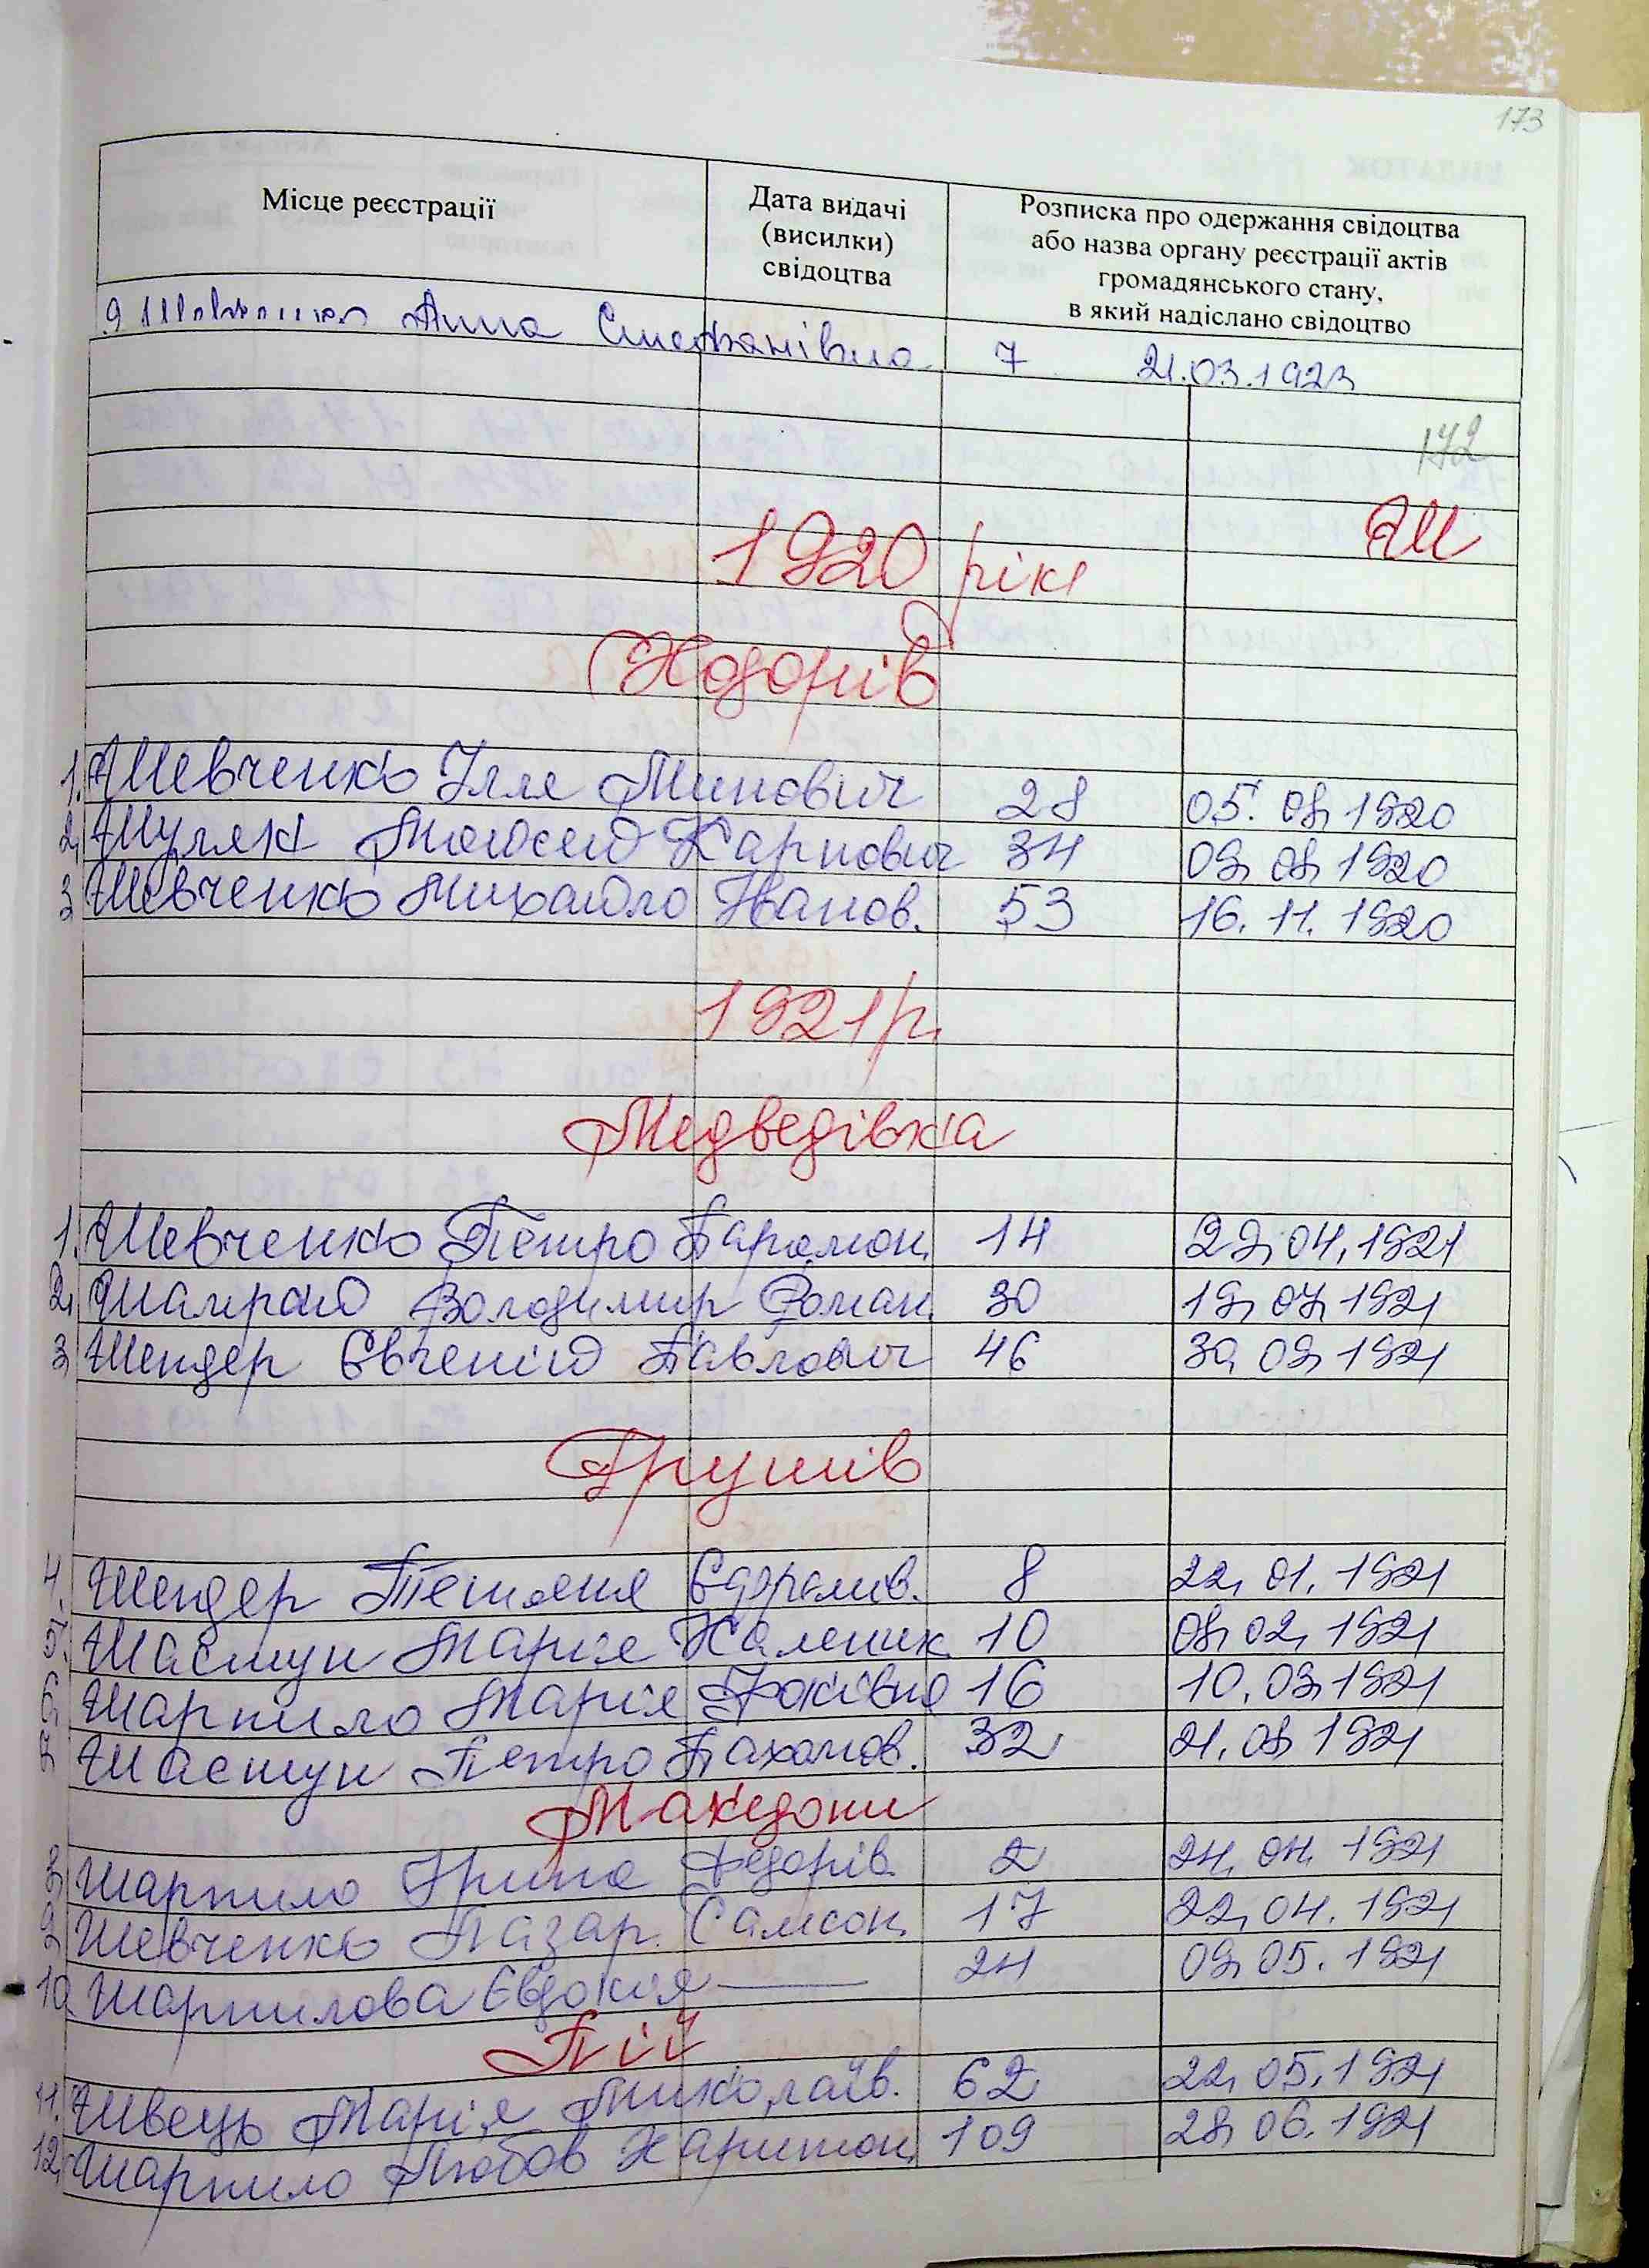 173
Місце реєстрації
Дата видачі
(висилки)
свідоцтва
Розписка про одержання свідоцтва
або назва органу реєстрації актів
громадянського стану,
в який надіслано свідоцтво
9 Анна Стефанівна 7 21.03.1923
172
1920 рік
Ходорів
1. Шевченко Ілля Минович 28 05.08.1920
2. Шуляк Мойсей Карпович 34 09.08.1920
3 Шевченко Михайло Іванов. 53 16.11.1920
1921 р.
Медведівка
1. Шевченко Петро Парамон. 14 29.04.1921
2. Шамрай Володимир Роман. 30 19.07.1921
3. Шендер Євгеній Павлович 46 30.09.1921
Грушів
4. Шендер Тетяна Єфремів. 8 22.01.1921
5. Шастун Марія Каленик 10 08.02.1921
6. Шарпило Марія 16 10.03.1921
7. Шастун Петро Пахомов. 32 21.08.1921
Македони
Шарпило Ірина Федорів. 2 24.04.1921
9 Шевченко Лазар Самсон. 17 22.04.1921
10. Шарпилова Євдокія — 24 09.05.1921
Пії
11. Швець Марія Миколаїв. 62 22.05.1921
12. Шарпило Любов Харитон. 109 28.06.1921